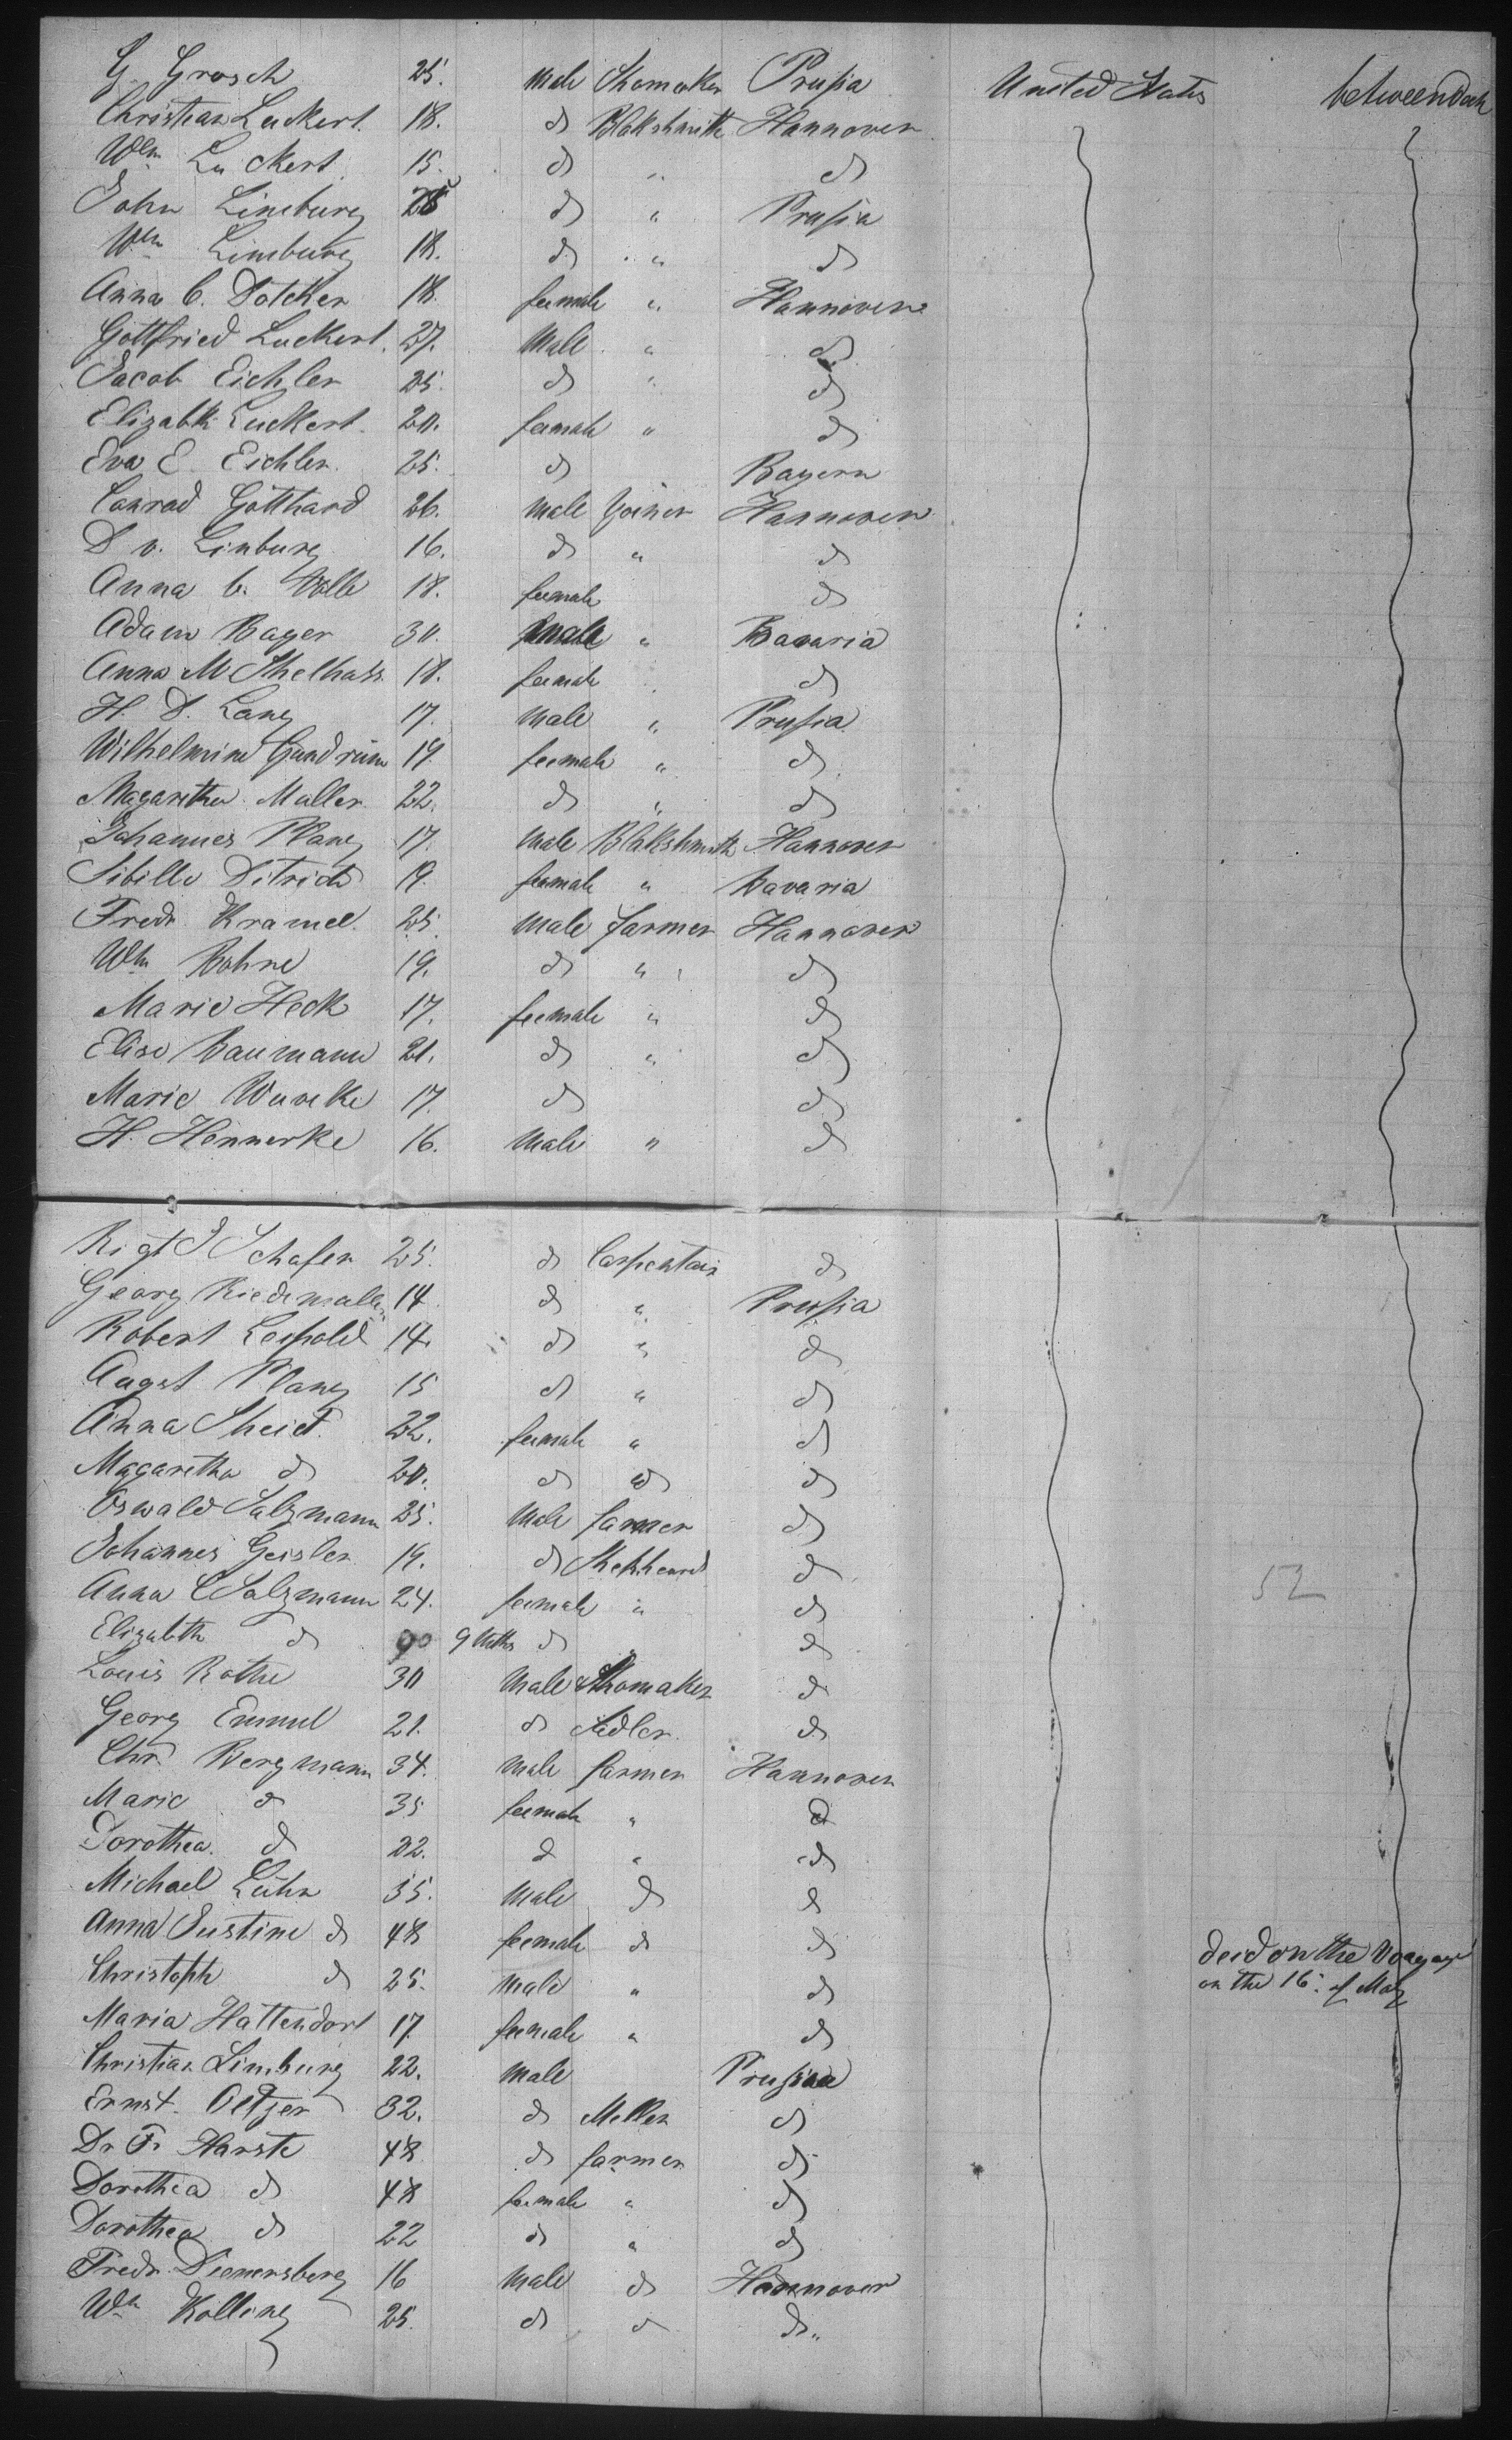 G. Grosch 25. Male Shomaker Prusia United States betweendeck
Christian Luckert. 18. do Blakshmith Hannover
Wlm Luckert. 15. do " do
John Limburg 28 do " Prusia
Wlm Limburg 18. do " do
Anna C. Dolcker 18. feemale " Hannover
Gottfried Luckert. 27. Male " do
Jacob Eichler 25. do " do
Elizabth Luckert. 20. feemale " do
Eva E. Eichler. 25. do Bayern
Conrad Gotthard 26. Male Joiner Hannover
D v. Linburg 16. do " do
Anna C. Wolle 18. feemale do
Adam Bayer 30. male " Bavaria
Anna M Shelhass 18. feemale do
H. D. Lang 17. Male " Prusia
Wilhelmine Gundrum 19. feemale " do
Magaretha Muller 22. do " do
Johannes Plang 17. Male Blakshmith Hannover
Sibille Ditrich 19. feemale " Bavaria
Fredr. Kramel. 25. Male farmer Hannover
Wlm Bohne 19. do " do
Marie Heck 17. feemale " do
Elise Baumann 21. do " do
Marie Wuneke 17. do do
H. Hennerke 16. Male " do
Rigt J Schafer 25. do Carpentair do
Georg Riedmuller 14. do " Prusia
Robert Leopold 14. do " do
Augst Plang 15 do " do
Anna Sheid. 22. feemale " do
Magaretha do 20. do do do
Oswald Salzmann 25. Male farmer do
Johannes Geisler 19. do Shepheard do 52
Anna C Salzmann 24. feemale " do
Elizabeth do 9 Mths do " do
Louis Rothe 30 Male Shomaker do
Georg Emmel 21. do Sadler do
Chr. Bergmann 34. Male farmer Hannover
Marie do 35 feemale " do
Dorothea. do 22. do " do
Michael Luhn 35. Male do do
Anna Justine do 48 feemale do do deid on the Voayage
on the 16. of May
Christoph do 25. Male " do
Maria Hattendorf 17. feemale " do
Christian Limburg 22. Male Prusia
Ernst. Oetzer 32. do Miller do
Dr. F. Harste 48 do farmer do
Dorothea do 48 feemale " do
Dorothea do 22 do " do
Fredr. Diemersberg 16 Male do Hannover
Wm Kolling 25. do do do "